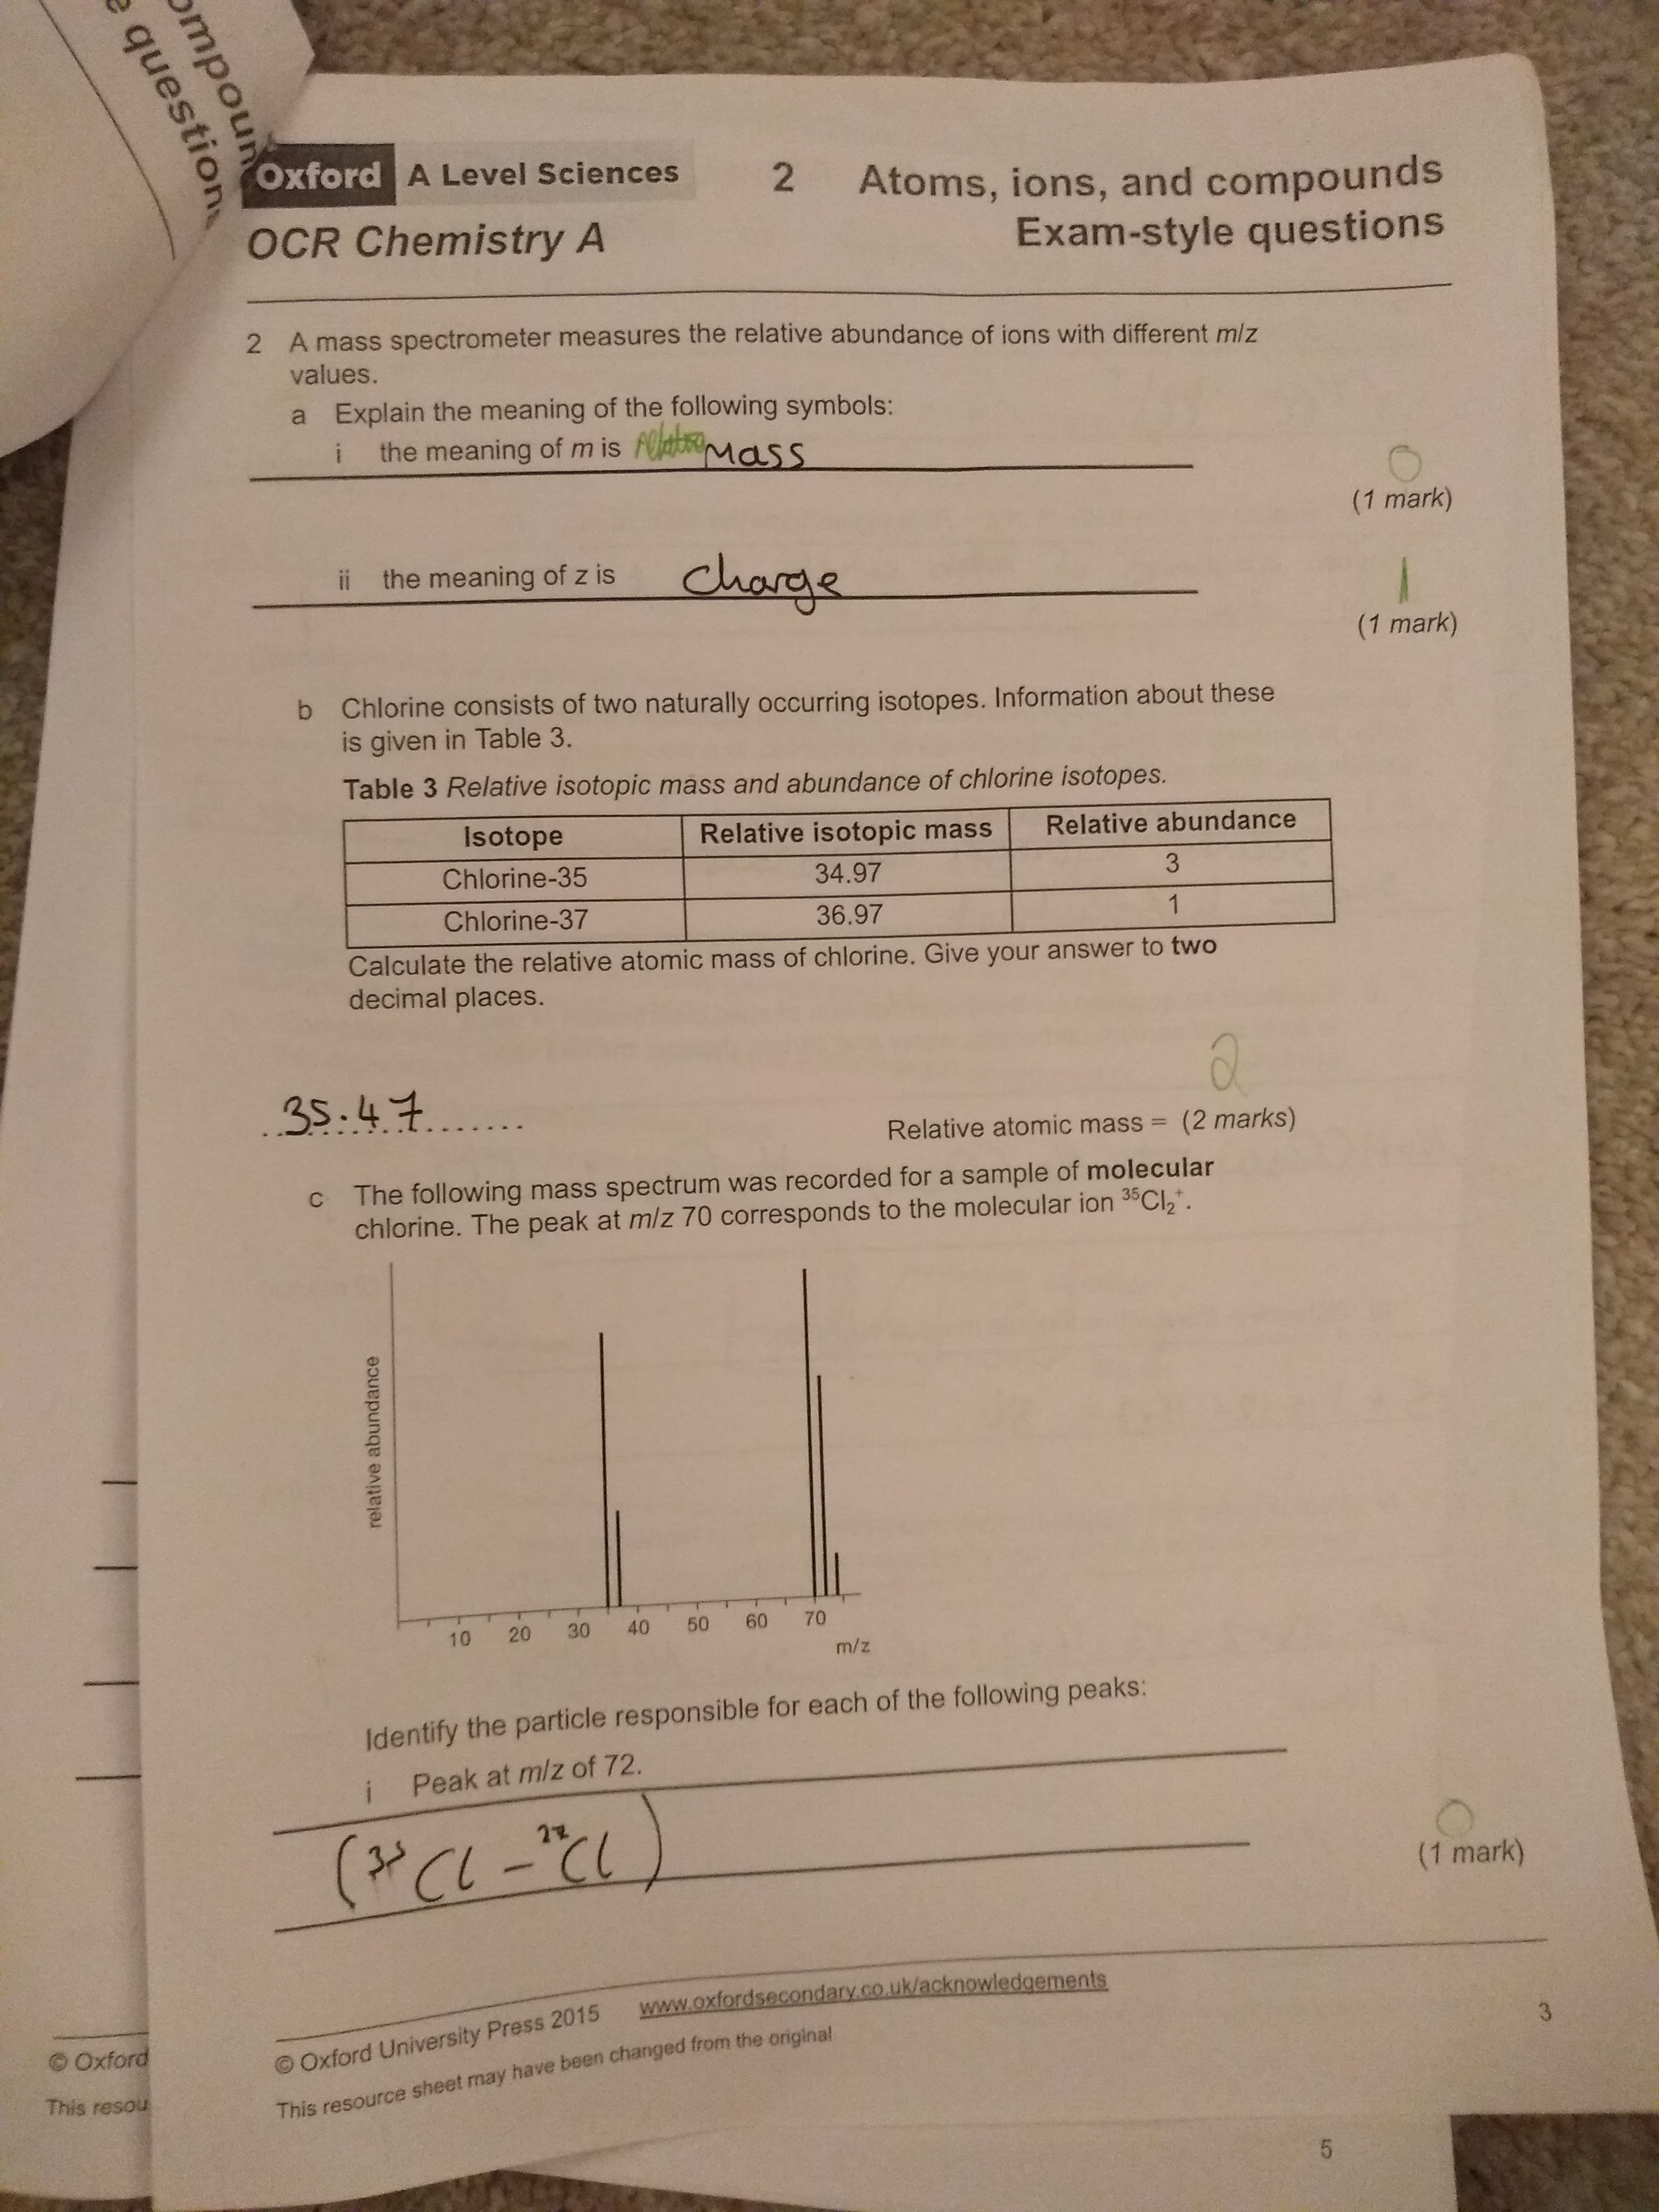 ompoun
e question
Oxford A Level Sciences 2 Atoms, ions, and compounds
OCR Chemistry A Exam-style questions
2 A mass spectrometer measures the relative abundance of ions with different m/z
values.
a Explain the meaning of the following symbols:
i the meaning of m is Mass
0
(1 mark)
ii the meaning of z is charge
1
(1 mark)
b Chlorine consists of two naturally occurring isotopes. Information about these
is given in Table 3.
Table 3 Relative isotopic mass and abundance of chlorine isotopes.
Isotope Relative isotopic mass Relative abundance
Chlorine-35 34.97 3
Chlorine-37 36.97 1
Calculate the relative atomic mass of chlorine. Give your answer to two
decimal places.
2
35.47 Relative atomic mass = (2 marks)
c The following mass spectrum was recorded for a sample of molecular
chlorine. The peak at m/z 70 corresponds to the molecular ion ³⁵Cl₂⁺.
relative abundance
10 20 30 40 50 60 70
m/z
Identify the particle responsible for each of the following peaks:
i Peak at m/z of 72.
0
(³⁵Cl – Cl)
(1 mark)
© Oxford University Press 2015 www.oxfordsecondary.co.uk/acknowledgements
This resource sheet may have been changed from the original
3
© Oxford
This resou
5